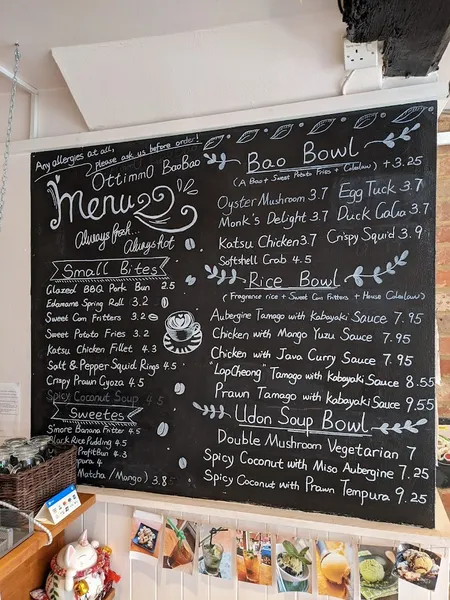 Any allergies at all,
please ask us before order!
Ottimmo BaoBao
Menu
Always fresh...
Always hot
Small Bites
Glazed BBQ Pork Bun 2.5
Edamame Spring Roll 3.2
Sweet Corn Fritters 3.2
Sweet Potato Fries 3.2
Katsu Chicken Fillet 4.3
Salt & Pepper Squid Rings 4.5
Crispy Prawn Gyoza 4.5
Spicy Coconut Soup 4.5
Sweetes
S'more Banana Fritter 4.5
Black Rice Pudding 4.5
ProfitBun 4.2
4
Matcha / Mango) 3.8
Bao Bowl +3.25
(A Bao + Sweet Potato Fries + Coleslaw)
Oyster Mushroom 3.7 Egg Tuck 3.7
Monk's Delight 3.7 Duck GaGa 3.7
Katsu Chicken 3.7 Crispy Squid 3.9
Softshell Crab 4.5
Rice Bowl
(Fragrance rice + Sweet Corn Fritters + House Coleslaw)
Aubergine Tamago with Kabayaki Sauce 7.95
Chicken with Mango Yuzu Sauce 7.95
Chicken with Java Curry Sauce 7.95
"LopCheong" Tamago with Kabayaki Sauce 8.55
Prawn Tamago with Kabayaki Sauce 9.55
Udon Soup Bowl
Double Mushroom Vegetarian 7
Spicy Coconut with Miso Aubergine 7.25
Spicy Coconut with Prawn Tempura 9.25